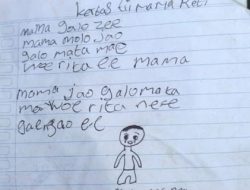 Kertas Tii Mama Reti
mama galo zee
mama molo Jao
galo mata mae
woe rita ee mama
mama jao galo mata
mae woe rita nese
gaengao ee